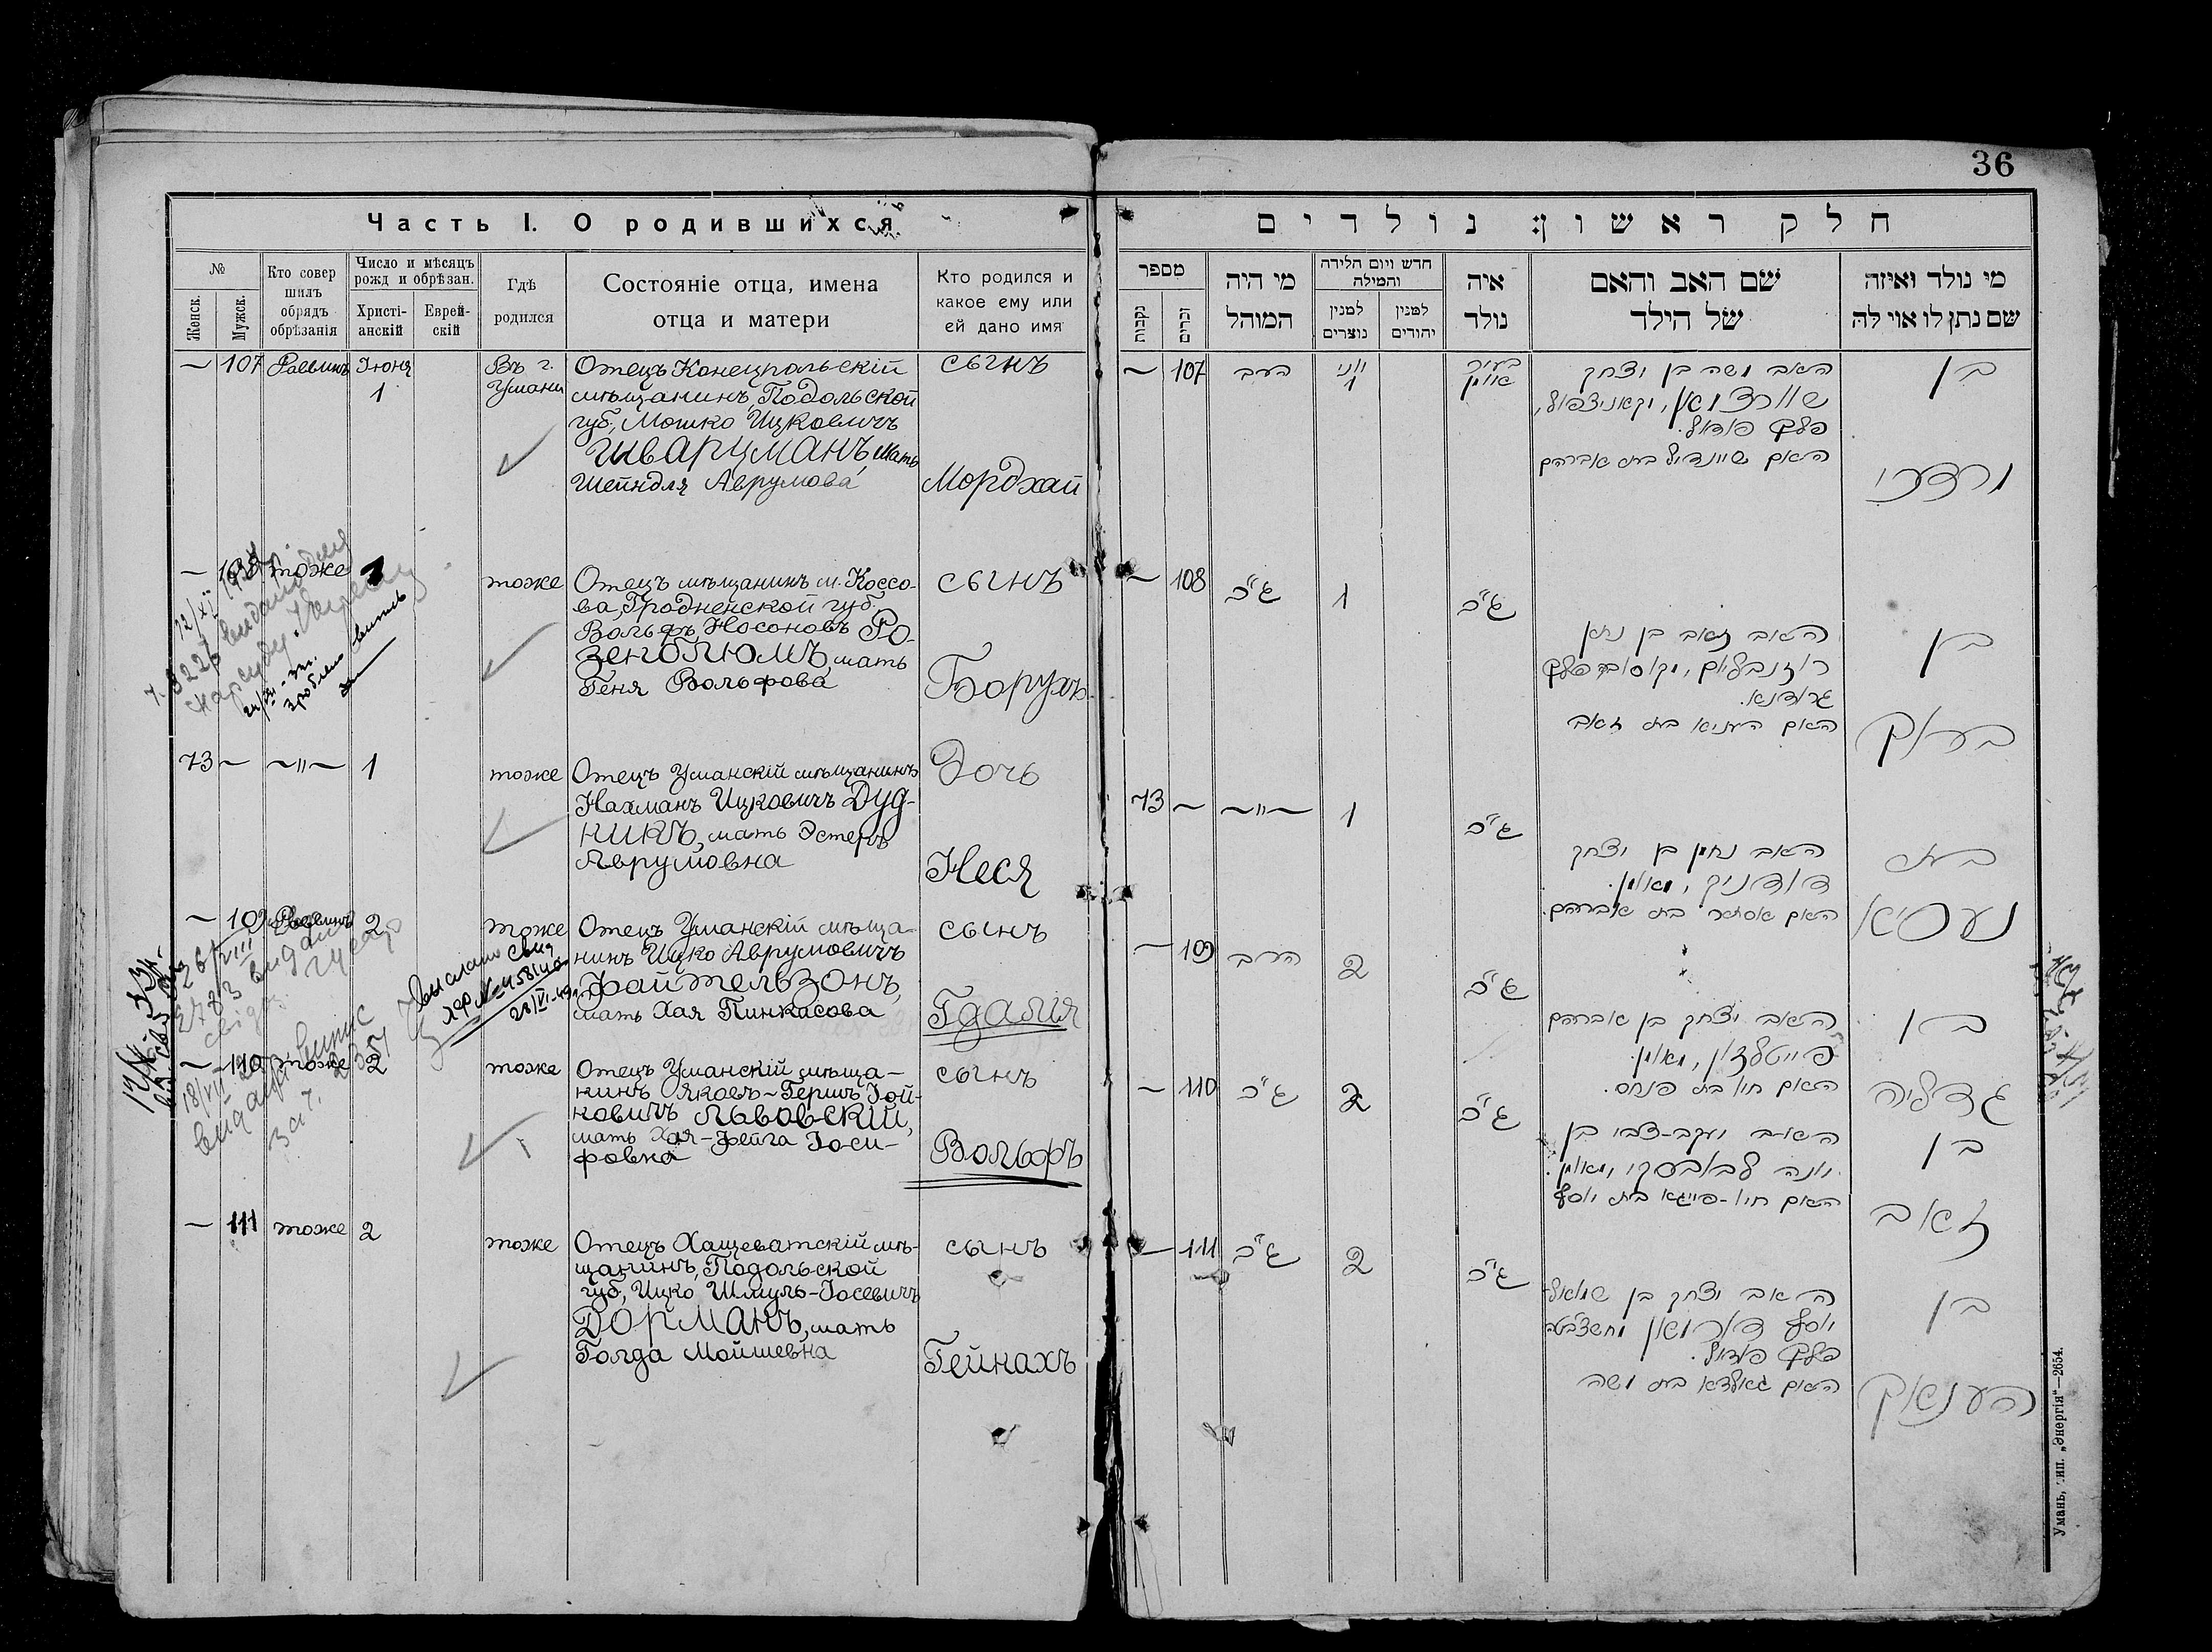 36
Часть I. О родившихся
№
Женск.
Мужск.
Кто совер
шилъ
обрядъ
обрѣзанія
Число и мѣсяцъ
рожд и обрѣзан.
Христі-
анскій
Еврей-
скій
Гдѣ
родился
Состояніе отца, имена
отца и матери
Кто родился и
какое ему или
ей дано имя
— 107 Раввинъ Іюня
1
Въ г.
Умани
Отецъ Конецпольскій
мѣщанинъ, Подольской
губ., Мошко Ицковичъ
Шварцманъ, мать
Шейндля Аврумова
сынъ
Мордхай
— 108 тоже 1
тоже
Отецъ мѣщанинъ м. Коссо-
ва, Гродненской губ.
Вольфъ Носоновъ Ро-
зенблюмъ, мать
Геня Вольфова
сынъ
Борухъ
73 — —„— 1
тоже
Отецъ Уманскій мѣщанинъ
Нахманъ Ицковичъ Дуд-
никъ, мать Эстеръ
Аврумовна
Дочь
Неся
— 109 Раввинъ 2
тоже
Отецъ Уманскій мѣща-
нинъ Ицко Аврумовичъ
Файтельзонъ,
мать Хая Пинкасова
сынъ
Гдалія
— 110 тоже 2
тоже
Отецъ Уманскій мѣща-
нинъ Яковъ-Гершъ Іой-
новичъ Львовскій,
мать Хая-Фейга Іоси-
фовна
сынъ
Вольфъ
— 111 тоже 2
тоже
Отецъ Хащеватскій мѣ-
щанинъ, Подольской
губ, Ицко Шмуль-Іосевичъ
Дорманъ, мать
Голда Мойшевна
сынъ
Гейнахъ
חלק ראשון: נולדים
מספר
נקבות
זכרים
מי היה
המוהל
חדש ויום הלידה
והמילה
למנין
נוצרים
למנין
יהודים
איה
נולד
שם האב והאם
של הילד
מי נולד ואיזה
שם נתן לו או לה
— 107 הרב יוני
1
בעיר
אומן
האב משה בן יצחק
שווארצמאן, מקאניצפול,
פלך פודול.
האם שיינדיל בת אברהם
בן
מרדכי
— 108 ג״כ 1 ג״כ
האב זאב בן נתן
רוזנבליום, מקאסוב פלך
גרודנא.
האם העניא בת זאב
בן
ברוך
73 — —„— 1 ג״כ
האב נחמן בן יצחק
דודניק, מאומן.
האם אסתר בת אברהם.
בת
נעסיא
— 109 הרב 2 ג״כ
האב יצחק בן אברהם
פייטלזון, מאומן.
האם חיה בת פנחס.
בן
גדליה
— 110 ג״כ 2 ג״כ
האב יעקב-צבי בן
יונה לבאבסקי, מאומן.
האם חיה-פייגא בת יוסף
בן
זאב
— 111 ג״כ 2 ג״כ
האב יצחק בן שמואל-
יוסף דורמאן מחשצבטה
פלך פודול.
האם גאלדא בת משה
בן
הענאך
Умань, тип. „Энергія“—2654.